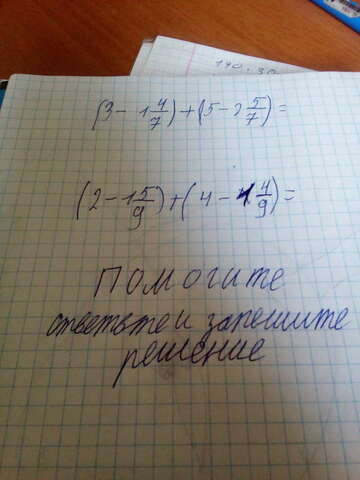 140:30
(3 - 1 4/7) + (5 - 2 5/7) =
(2 - 1 5/9) + (4 - 1 4/9) =
Помогите
ответьте и запешите
решение